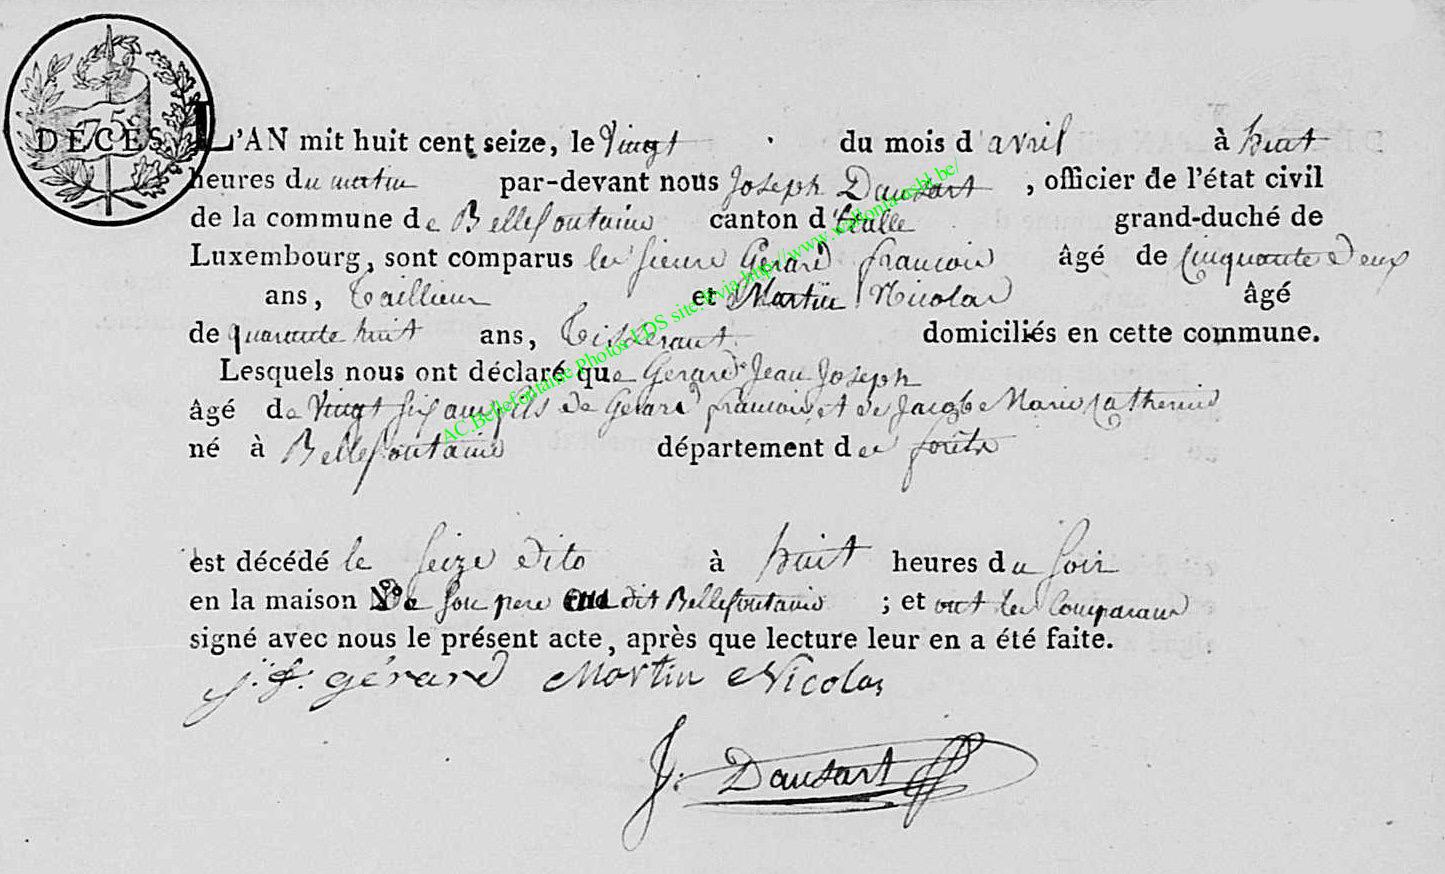 DECES L'AN mit huit cent seize, le Vingt du mois d'avril à huit
heures du matin par-devant nous Joseph Dausart, officier de l'état civil
de la commune de Bellefontaine canton d'Etalle grand-duché de
Luxembourg, sont comparus les sieurs Gerard francois âgé de Cinquante Deux
ans, tailleur et Martin Nicolas âgé
de quarante huit ans, Tisserant domiciliés en cette commune.
Lesquels nous ont déclaré que Gerard Jean Joseph
âgé de Vingt six ans fils de Gerard francois et de Jacque Marie Catherine
né à Bellefontaine département des forêts
est décédé le seize dito à huit heures du soir
en la maison De son pere dit Bellefontaine ; et ont les Comparans
signé avec nous le présent acte, après que lecture leur en a été faite.
j. f. gérard Martin Nicolas
J. Dausart
75
AC.Bellefontaine Photos LDS site.@via http://www.wallonia-asbl.be/